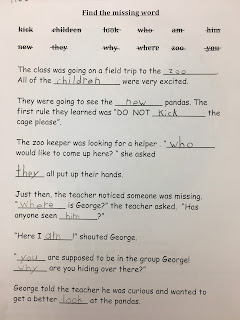 Find the missing word
kick children look who am him
new they why where zoo you
The class was going on a field trip to the zoo.
All of the children were very excited.
They were going to see the new pandas. The
first rule they learned was "DO NOT kick the
cage please".
The zoo keeper was looking for a helper. "Who
would like to come up here?" she asked
they all put up their hands.
Just then, the teacher noticed someone was missing.
"where is George?" the teacher asked. "Has
anyone seen him?"
"Here I am!" shouted George.
"you are supposed to be in the group George!
why are you hiding over there?"
George told the teacher he was curious and wanted to
get a better look at the pandas.